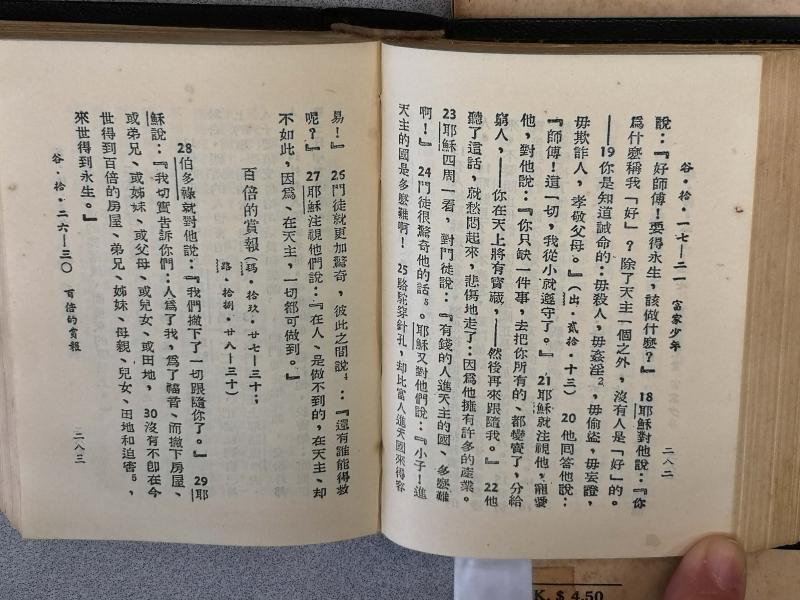 谷·拾·一七—二一　富家少年　二八二
說：『好師傅！要得永生，該做什麼？』 18 耶穌對他說：『你
爲什麼稱我「好」？除了天主一個之外，沒有人是「好」的。
——19 你是知道誡命的：毋殺人，毋姦淫²，毋偷盜，毋妄證，
毋欺詐人，孝敬父母。』（出·貳拾·十三） 20 他回答他說：
『師傅！這一切，我從小就遵守了。』 21 耶穌就注視他，寵愛
他，對他說：『你只缺一件事，去把你所有的、都變賣了，分給
窮人，——你在天上將有寶藏，——然後再來跟隨我。』 22 他
聽了這話，就愁悶起來，悲傷地走了：因爲他擁有許多的產業。
23 耶穌四周一看，對門徒說：『有錢的人進天主的國、多麼難
啊！』 24 門徒很驚奇他的話⁵。耶穌又對他們說：『小子！進
天主的國是多麼難啊！ 25 駱駝穿針孔，却比富人進天國來得容
易！』 26 門徒就更加驚奇，彼此之間說⁴：『還有誰能得救
呢？』 27 耶穌注視他們說：『在人、是做不到的，在天主、却
不如此，因爲、在天主，一切都可做到。』
百倍的賞報（瑪·拾玖·廿七—三十；
路·拾捌·廿八—三十）
28 伯多祿就對他說：『我們撇下了一切跟隨你了。』 29 耶
穌說：『我切實告訴你們：人爲了我，爲了福音、而撇下房屋、
或弟兄、或姊妹、或父母、或兒女、或田地， 30 沒有不卽在今
世得到百倍的房屋、弟兄、姊妹、母親、兒女、田地和迫害⁵，
來世得到永生。』
谷·拾·二六—三〇　百倍的賞報　二八三
K. $ 4.50